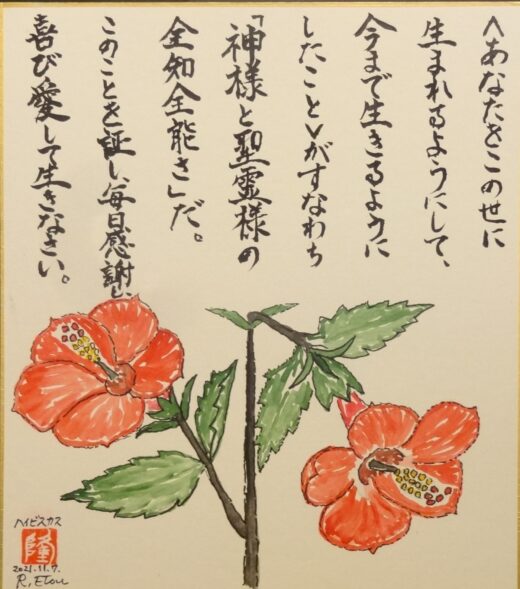 <あなたをこの世に
生まれるようにして、
今まで生きるように
したこと>がすなわち
「神様と聖霊様の
全知全能さ」だ。
このことを証し、毎日感謝し、
喜び愛して生きなさい。
ハイビスカス
隆
2021.11.7.
R. Etou